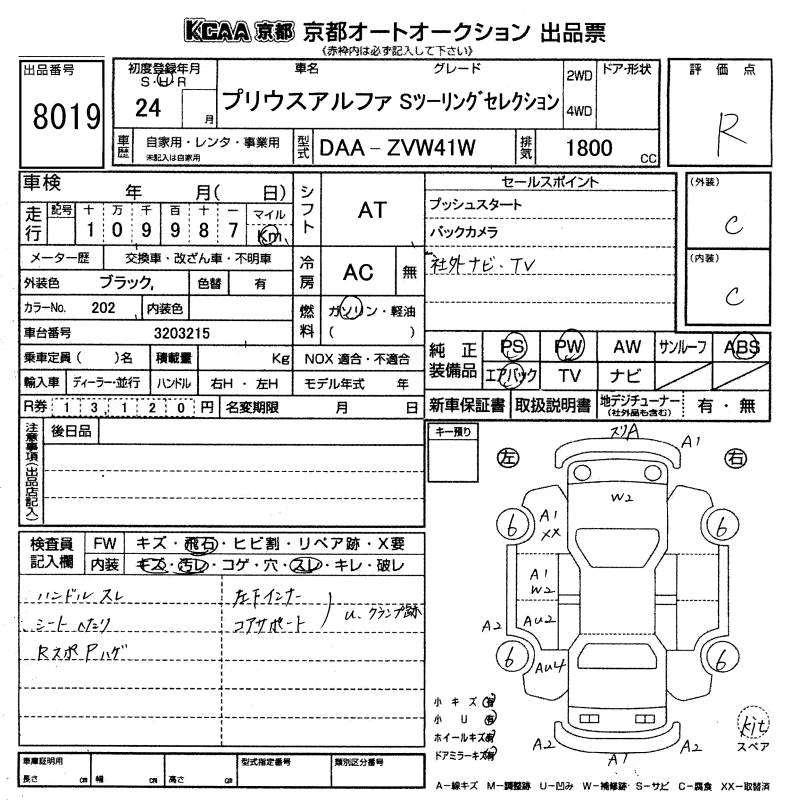 KCAA 京都 京都オートオークション 出品票
《赤枠内は必ず記入して下さい》
出品番号
8019
初度登録年月
S・H・R
24 月
車名 グレード
プリウスアルファ Sツーリングセレクション
2WD
4WD
ドア・形状
評価点
R
車歴
自家用・レンタ・事業用
未記入は自家用
型式
DAA－ZVW41W
排気
1800 CC
車検 年 月( 日)
走行
記号 十 万 千 百 十 一 マイル
1 0 9 9 8 7 Km
メーター歴 交換車・改ざん車・不明車
外装色 ブラック, 色替 有
カラーNo. 202 内装色
車台番号 3203215
乗車定員( )名 積載量 Kg
輸入車 ディーラー・並行 ハンドル 右H・左H
R券 1 3 1 2 0 円 名変期限 月 日
シフト AT
冷房 AC 無
燃料 ガソリン・軽油
( )
NOX 適合・不適合
モデル年式 年
セールスポイント
プッシュスタート
バックカメラ
社外ナビ・TV
(外装)
C
(内装)
C
純正装備品
PS PW AW サンルーフ ABS
エアバック TV ナビ
新車保証書 取扱説明書 地デジチューナー(社外品も含む) 有・無
注意事項(出品店記入)
後日品
キー預り
検査員記入欄
FW キズ・飛石・ヒビ割・リペア跡・X要
内装 キズ・汚レ・コゲ・穴・スレ・キレ・破レ
ハンドル スレ
シート ヘタリ
RスポPハゲ
左下インナー
コアサポート
U、クランプ跡
左 右
スリA A1
W2
6 A1 XX 6
A1 W2
A2 AU2
6 AU4 6
A2 A1 A2
小キズ 有
小U 有
ホイールキズ 有
ドアミラーキズ 有
kit
スペア
車庫証明用
長さ cm 幅 cm 高さ cm
型式指定番号
類別区分番号
A－線キズ M－調整跡 U－凹み W－補修跡・S－サビ C－腐食 XX－取替済